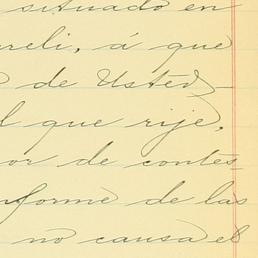 situado en
reli, á que
de Usted
l que rije,
or de contes-
nforme de las
no causa el